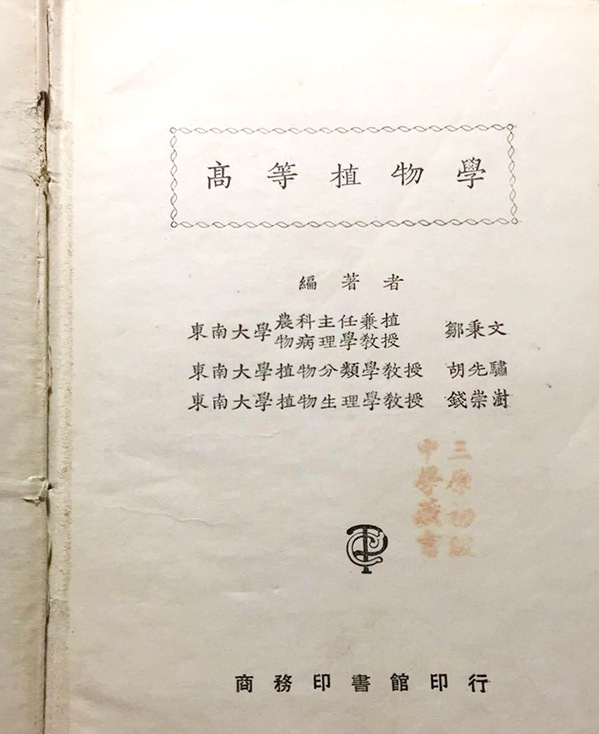 高等植物學
編著者
東南大學農科主任兼植物病理學教授 鄒秉文
東南大學植物分類學教授 胡先驌
東南大學植物生理學教授 錢崇澍
三原初級
中學藏書
CPT
商務印書館印行